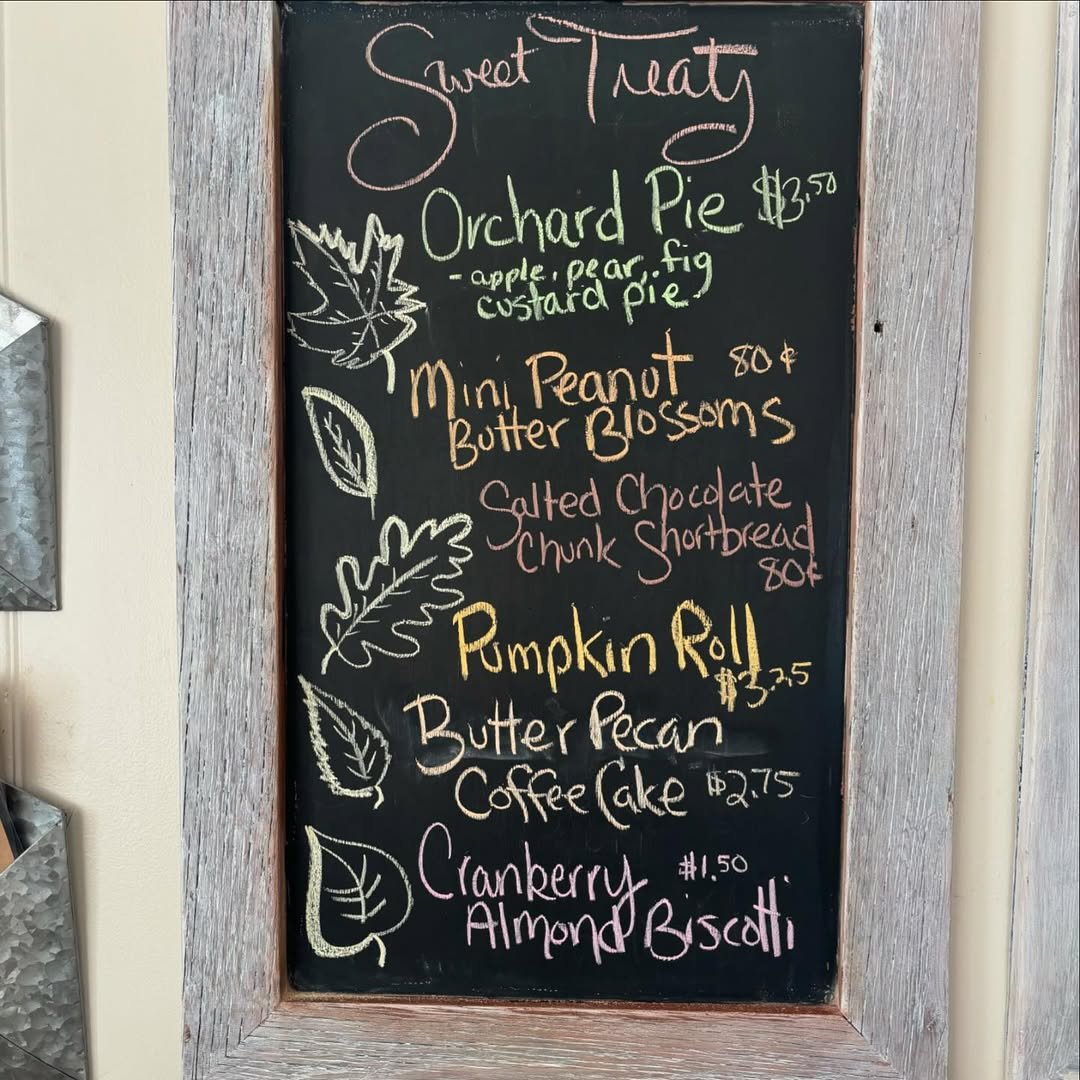 Sweet Treats
Orchard Pie $3.50
- apple, pear, fig
custard pie
Mini Peanut 80¢
Butter Blossoms
Salted Chocolate
Chunk Shortbread
80¢
Pumpkin Roll
$3.25
Butter Pecan
Coffee Cake $2.75
Cranberry $1.50
Almond Biscotti